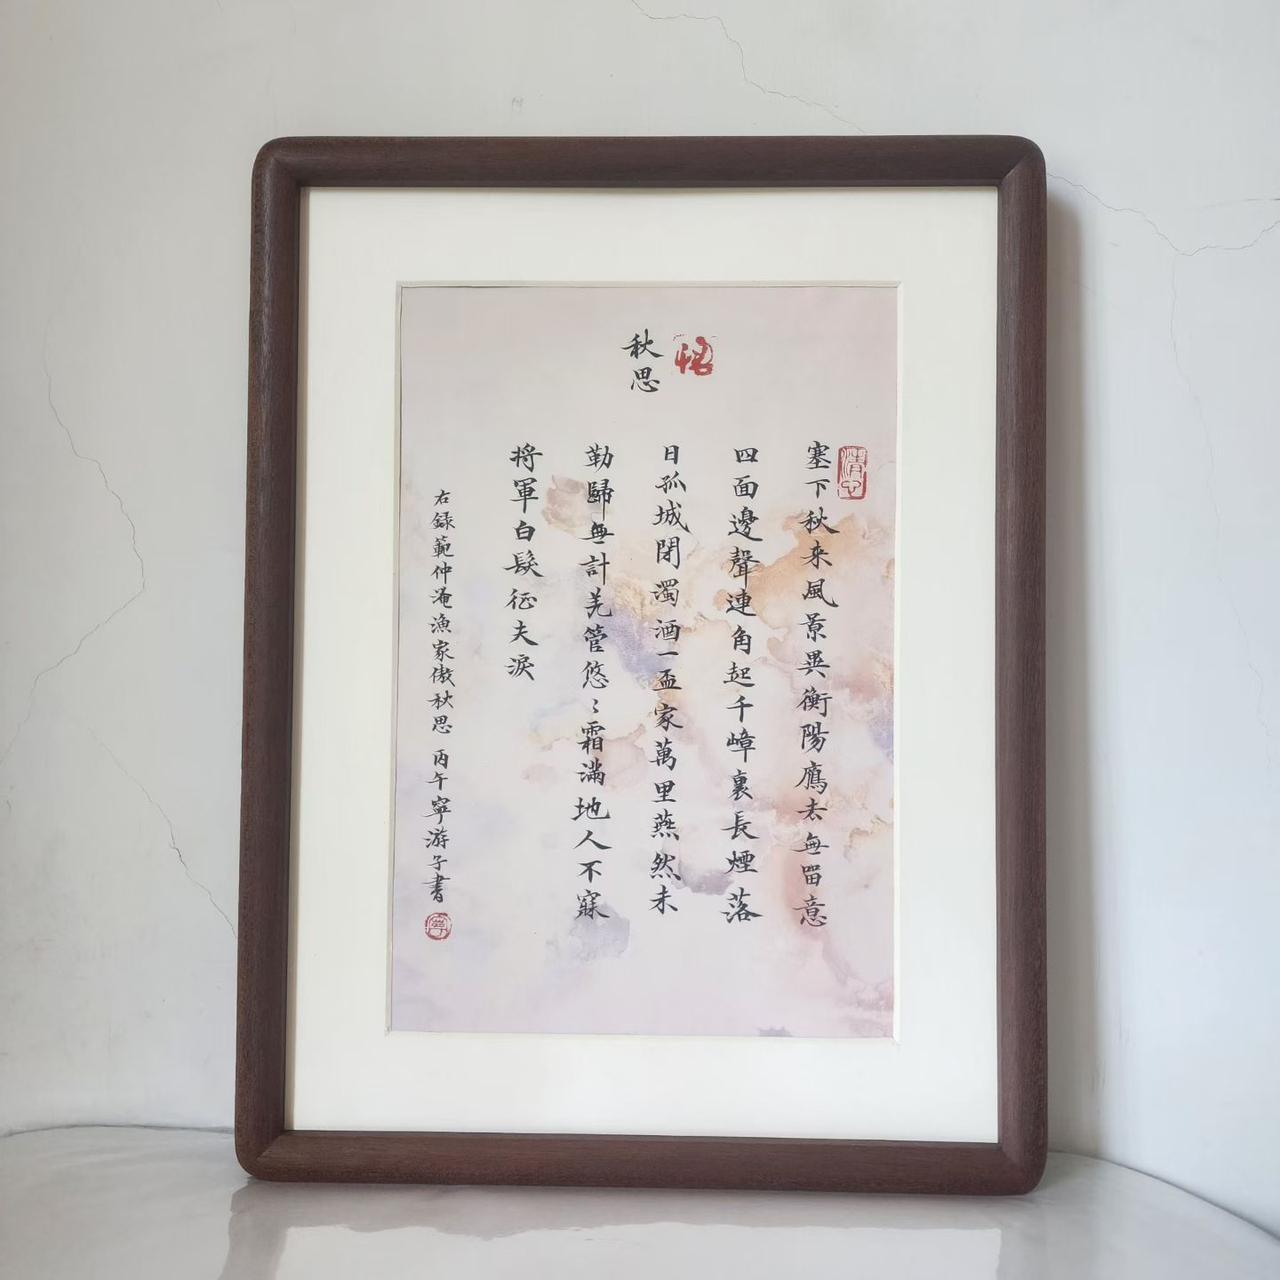 秋思
塞下秋来風景異衡陽鴈去無留意
四面邊聲連角起千嶂裏長煙落
日孤城閉濁酒一盃家萬里燕然未
勒歸無計羌管悠〻霜滿地人不寐
將軍白髮征夫淚
右録範仲淹漁家傲秋思 丙午寧游子書